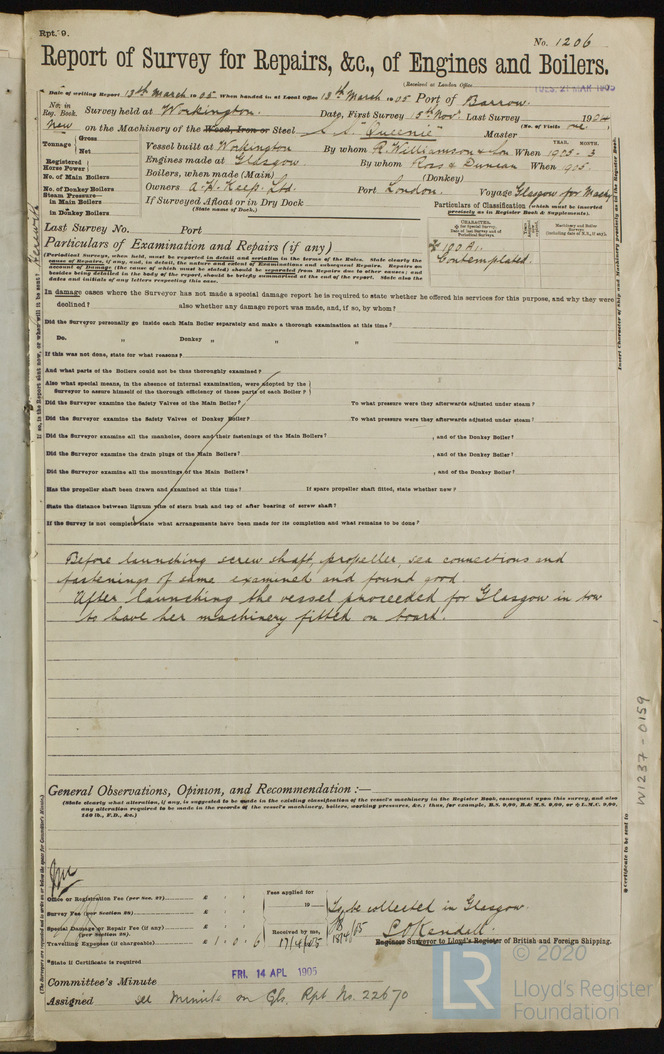 Rpt. 9.
No. 1206
Report of Survey for Repairs, &c., of Engines and Boilers.
(Received at London Office TUES. 21 MAR 1905
Date of writing Report 13th March 1905 When handed in at Local Office 13th March 1905 Port of Barrow
No. in Reg. Book. Survey held at Workington. Date, First Survey 15th Nov. Last Survey 1904
New on the Machinery of the Wood, Iron or Steel S.S. "Queenie" Master (No. of Visits one)
Tonnage Gross Net Vessel built at Workington By whom R. Williamson & Son When 1905-3 YEAR. MONTH.
Registered Horse Power Engines made at Glasgow. By whom Ross & Duncan When 1905.
No. of Main Boilers Boilers, when made (Main) (Donkey)
No. of Donkey Boilers Owners A. H. Keep. Ltd. Port London. Voyage Glasgow for Machy
Steam Pressure— in Main Boilers in Donkey Boilers If Surveyed Afloat or in Dry Dock
(State name of Dock.)
Particulars of Classification (which must be inserted precisely as in Register Book & Supplements).
Last Survey No. Port
CHARACTER. ✠ for Special Survey. Date of last Survey and of Periodical Surveys.
Machinery and Boiler Surveys (including date of N.B., if any).
✠ 100 A1.
Contemplated.
Particulars of Examination and Repairs (if any)
(Periodical Surveys, when held, must be reported in detail and seriatim in the terms of the Rules. State clearly the
cause of Repairs, if any, and, in detail, the nature and extent of Examinations and subsequent Repairs. Repairs on
account of Damage (the cause of which must be stated) should be separated from Repairs due to other causes; and
besides being detailed in the body of the report, should be briefly summarised at the end of the report. State also the
dates and initials of any letters respecting this case.
In damage cases where the Surveyor has not made a special damage report he is required to state whether he offered his services for this purpose, and why they were
declined? also whether any damage report was made, and, if so, by whom?
Did the Surveyor personally go inside each Main Boiler separately and make a thorough examination at this time?
Do. " Donkey " " "
If this was not done, state for what reasons?
And what parts of the Boilers could not be thus thoroughly examined?
Also what special means, in the absence of internal examination, were adopted by the
Surveyor to assure himself of the thorough efficiency of those parts of each Boiler?
Did the Surveyor examine the Safety Valves of the Main Boiler? To what pressure were they afterwards adjusted under steam?
Did the Surveyor examine the Safety Valves of Donkey Boiler? To what pressure were they afterwards adjusted under steam?
Did the Surveyor examine all the manholes, doors and their fastenings of the Main Boilers? , and of the Donkey Boiler?
Did the Surveyor examine the drain plugs of the Main Boilers? , and of the Donkey Boiler?
Did the Surveyor examine all the mountings of the Main Boilers? , and of the Donkey Boiler?
Has the propeller shaft been drawn and examined at this time? If spare propeller shaft fitted, state whether new?
State the distance between lignum vitæ of stern bush and top of after bearing of screw shaft?
If the Survey is not complete state what arrangements have been made for its completion and what remains to be done?
Before launching screw shaft, propeller, sea connections and
fastenings of same examined and found good.
After launching the vessel proceeded for Glasgow in tow
to have her machinery fitted on board.
General Observations, Opinion, and Recommendation:—
(State clearly what alteration, if any, is suggested to be made in the existing classification of the vessel's machinery in the Register Book, consequent upon this survey, and also
any alteration required to be made in the records of the vessel's machinery, boilers, working pressures, &c.; thus, for example, B.S. 9,00, B.& M.S. 9,00, or ✠ L.M.C. 9,00,
140 lb., F.D., &c.)
Office or Registration Fee (per Sec. 27) £
Fees applied for
19
Survey Fee (per Section 28) £
Special Damage or Repair Fee (if any) (per Section 28) £
Received by me,
Travelling Expenses (if chargeable) £ 1 . 0 . 6
17/4/1905
18/4/05
To be collected in Glasgow.
Engineer Surveyor to Lloyd's Register of British and Foreign Shipping.
*State if Certificate is required
Committee's Minute FRI. 14 APL 1905
Assigned see minute on Gls. Rpt No. 22670
W1237-0159
© 2020
LR
Lloyd's Register
Foundation